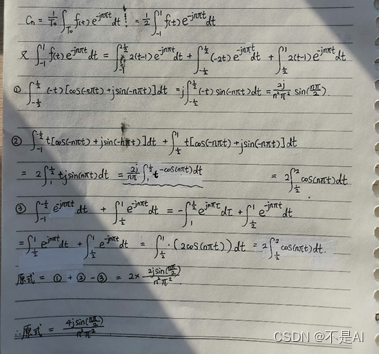 Cn = 1/T₀ ∫_T₀ f(t)e^-jnπt dt = 1/2 ∫_-1^1 f(t)e^-jnπt dt
又 ∫_-1^1 f(t)e^-jnπt dt = ∫_-1^-1/2 2(t-1)e^-jnπt dt + ∫_-1/2^1/2 (-2t)e^-jnπt dt + ∫_1/2^1 2(t-1)e^-jnπt dt
① ∫_-1/2^1/2 (-t)[cos(-nπt)+jsin(-nπt)]dt = j∫_-1/2^1/2 (-t)sin(-nπt)dt = 2j/n²π² sin(nπ/2)
② ∫_-1^-1/2 t[cos(-nπt)+jsin(-nπt)]dt + ∫_1/2^1 t[cos(-nπt)+jsin(-nπt)]dt
= 2∫ tjsin(nπt)dt = 2j/nπ ∫ t-cos(nπt)dt = 2∫ cos(nπt)dt
③ ∫_-1^-1/2 e^-jnπt dt + ∫_1/2^1 e^-jnπt dt = -∫ e^jnπτ dτ + ∫_1/2^1 e^-jnπt dt
= ∫_1/2^1 e^jnπt dt + ∫_1/2^1 e^-jnπt dt = ∫_1/2^1 (2cos(nπt))dt = 2∫ cos(nπt)dt.
原式 = ① + ② - ③ = 2× 2jsin(nπ/2)/n²π²
∴原式 = 4jsin(nπ/2)/n²π²
CSDN @不是AI